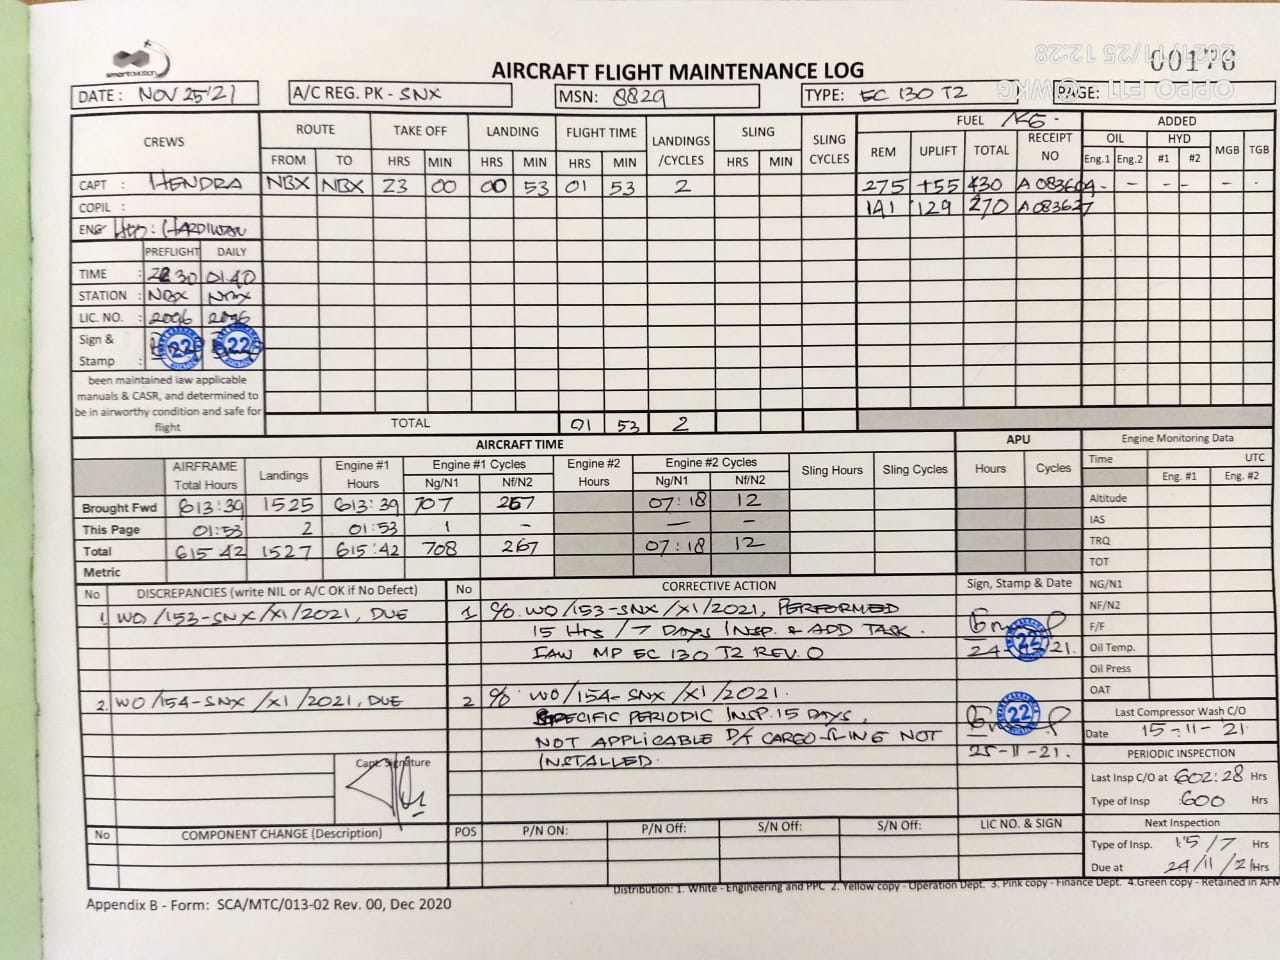 smartaviation
AIRCRAFT FLIGHT MAINTENANCE LOG
00176
2021/11/25 12:28
OPPO F11 · @WKG
DATE: NOV 25'21
A/C REG. PK - SNX
MSN: 8829
TYPE: EC 130 T2
PAGE:
CREWS ROUTE TAKE OFF LANDING FLIGHT TIME LANDINGS /CYCLES SLING SLING CYCLES FUEL KG. ADDED
FROM TO HRS MIN HRS MIN HRS MIN HRS MIN REM UPLIFT TOTAL RECEIPT NO OIL HYD MGB TGB
Eng.1 Eng.2 #1 #2
CAPT : HENDRA NBX NBX 23 00 00 53 01 53 2 275 +55 430 A 083604 - - - - - -
COPIL : 141 129 270 A 083627
ENG HLO : HARDIWAN
PREFLIGHT DAILY
TIME : 2230 01.40
STATION : NBX NBX
LIC. NO. : 2096 2096
Sign & Stamp : 22 22
been maintained iaw applicable
manuals & CASR, and determined to
be in airworthy condition and safe for
flight
TOTAL 01 53 2
AIRCRAFT TIME APU Engine Monitoring Data
AIRFRAME Total Hours Landings Engine #1 Hours Engine #1 Cycles Engine #2 Hours Engine #2 Cycles Sling Hours Sling Cycles Hours Cycles Time UTC
Ng/N1 Nf/N2 Ng/N1 Nf/N2 Eng. #1 Eng. #2
Brought Fwd 613:39 1525 613:39 707 267 07:18 12
This Page 01:53 2 01:53 1 - - -
Total 615 42 1527 615:42 708 267 07:18 12
Metric
Altitude
IAS
TRQ
TOT
NG/N1
NF/N2
F/F
Oil Temp.
Oil Press
OAT
No DISCREPANCIES (write NIL or A/C OK if No Defect) No CORRECTIVE ACTION Sign, Stamp & Date
1. WO/153-SNX/XI/2021, DUE 1 C/O. WO/153-SNX/XI/2021, PERFORMED
15 Hrs/7 DAYS INSP. & ADD TASK.
IAW MP EC 130 T2 REV. 0
22
24- -21.
2. WO/154-SNX/XI/2021, DUE 2 C/O WO/154-SNX/XI/2021.
SPECIFIC PERIODIC INSP. 15 DAYS,
NOT APPLICABLE D/T CARGO SLING NOT
INSTALLED.
22
25-11-21.
Capt. Signature
Last Compressor Wash C/O
Date 15-11-'21
PERIODIC INSPECTION
Last Insp C/O at 602:28 Hrs
Type of Insp :600 Hrs
Next Inspection
Type of Insp. 15/7 Hrs
Due at 24/11/21 Hrs
No COMPONENT CHANGE (Description) POS P/N ON: P/N Off: S/N Off: S/N Off: LIC NO. & SIGN
Distribution: 1. White - Engineering and PPC 2. Yellow copy - Operation Dept. 3. Pink copy - Finance Dept. 4.Green copy - Retained in AFM
Appendix B - Form: SCA/MTC/013-02 Rev. 00, Dec 2020